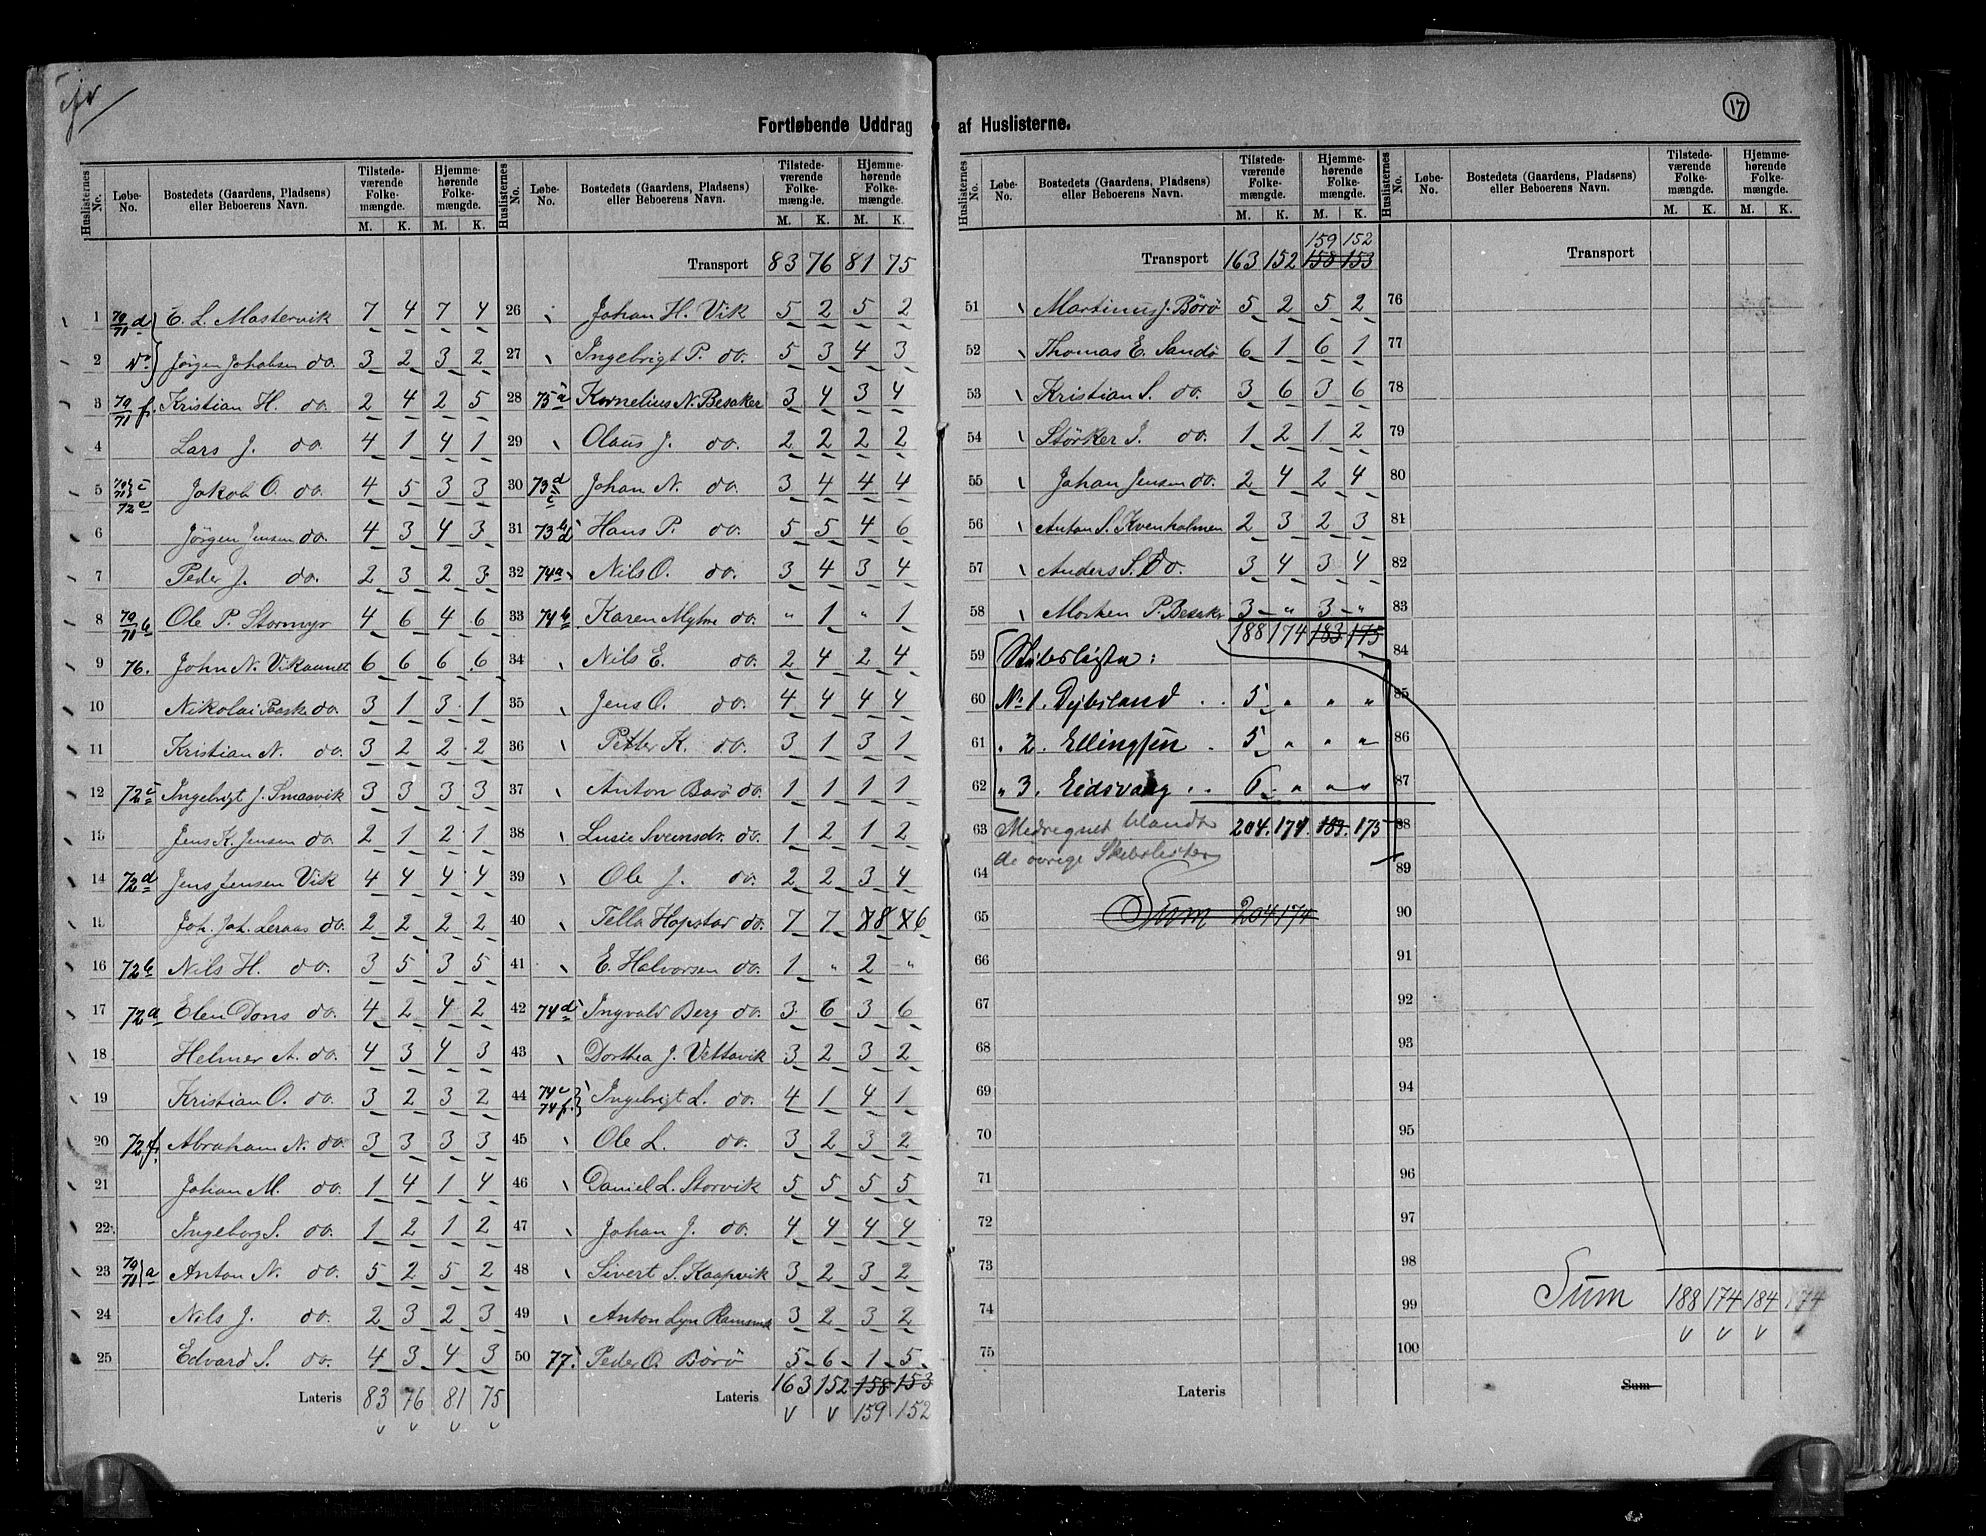 Fortløbende Uddrag af Huslisterne.
17
Huslisternes No. Løbe-No. Bostedets (Gaardens, Pladsens) eller Beboerens Navn. Tilstedeværende Folkemængde. M. K. Hjemmehørende Folkemængde. M. K.
1 70/71 d E. L. Mastervik 7 4 7 4
2 do Jørgen Johabsen do. 3 2 3 2
3 70/71 f. Kristian H. do. 2 4 2 5
4 Lars J. do. 4 1 4 1
5 70/71 c 72 e Jakob O. do. 4 5 3 3
6 Jørgen Jensen do. 4 3 4 3
7 Peder J. do. 2 3 2 3
8 70/71 b Ole P. Stormyr 4 6 4 6
9 76. John N. Vikannet 6 6 6 6
10 Nikolai do. 3 1 3 1
11 Kristian N. do. 3 2 2 2
12 72 c Ingebrigt J. Smaavik 3 3 3 3
13 Jens K. Jensen do. 2 1 2 1
14 72 d Jens Jensen Vik 4 4 4 4
15 Joh. Joh. Leraas do. 2 2 2 2
16 72 b Nils H. do. 3 5 3 5
17 72 a Elen Dons do. 4 2 4 2
18 Helmer A. do. 4 3 4 3
19 Kristian O. do. 3 2 3 2
20 72 f. Abraham N. do. 3 3 3 3
21 Johan M. do. 1 4 1 4
22 Ingeborg S. do. 1 2 1 2
23 70/71 a Anton N. do. 5 2 5 2
24 Nils J. do. 2 3 2 3
25 Edvard S. do. 4 3 4 3
Lateris 83 76 81 75
Huslisternes No. Løbe-No. Bostedets (Gaardens, Pladsens) eller Beboerens Navn. Tilstedeværende Folkemængde. M. K. Hjemmehørende Folkemængde. M. K.
Transport 83 76 81 75
26 Johan H. Vik 5 2 5 2
27 Ingebrigt P. do. 5 3 4 3
28 75 a Kornelius N. Besaker 3 4 3 4
29 Olaus J. do. 2 2 2 2
30 73 d c Johan N. do. 3 4 4 4
31 73 b d Hans P. do. 5 5 4 6
32 74 a Nils O. do. 3 4 3 4
33 74 b. Karen Myhre do. " 1 " 1
34 Nils E. do. 2 4 2 4
35 Jens O. do. 4 4 4 4
36 Petter K. do. 3 1 3 1
37 Anton Barø do. 1 1 1 1
38 Lusie Sveinsdr. do. 1 2 1 2
39 Ole J. do. 2 2 3 4
40 Tella Hopstad do. 7 7 8 6
41 E. Halvorsen do. 1 " 2 "
42 74 d Ingvald Berg do. 3 6 3 6
43 Dorthea J. Vettavik 3 2 3 2
44 74 c 74 f. Ingebrigt L. do. 4 1 4 1
45 Ole L. do. 3 2 3 2
46 Daniel L. Storvik 5 5 5 5
47 Johan J. do. 4 4 4 4
48 Sivert S. Kaapvik 3 2 3 2
49 Anton Lyn 3 2 3 2
50 77. Peder O. Børø 5 6 1 5
Lateris 163 152 158 153
159 152
Huslisternes No. Løbe-No. Bostedets (Gaardens, Pladsens) eller Beboerens Navn. Tilstedeværende Folkemængde. M. K. Hjemmehørende Folkemængde. M. K.
159 152
Transport 163 152 158 153
51 Martinus J. Børø 5 2 5 2
52 Thomas E. Sandø 6 1 6 1
53 Kristian S. do. 3 6 3 6
54 Størker J. do. 1 2 1 2
55 Johan Jensen do. 2 4 2 4
56 Anton S. Kvenholmen 2 3 2 3
57 Anders S. Do. 3 4 3 4
58 Morten P. Besaker 3 " 3 "
188 174 183 175
59 Skibslister:
60 No 1. Dybsland . . 5 " " "
61 " 2. Ellingsen . 5 " " "
62 " 3. Eidsvaag . . 6 " " "
63 Medregnet blandt 204. 174. 183. 175
de øvrige Skibslister
64
65 Sum 204 174
66
67
68
69
70
71
72
73
74
75
Lateris
Huslisternes No. Løbe-No. Bostedets (Gaardens, Pladsens) eller Beboerens Navn. Tilstedeværende Folkemængde. M. K. Hjemmehørende Folkemængde. M. K.
Transport
76
77
78
79
80
81
82
83
84
85
86
87
88
89
90
91
92
93
94
95
96
97
98
99 Sum 188 174 184 174
100
Sum